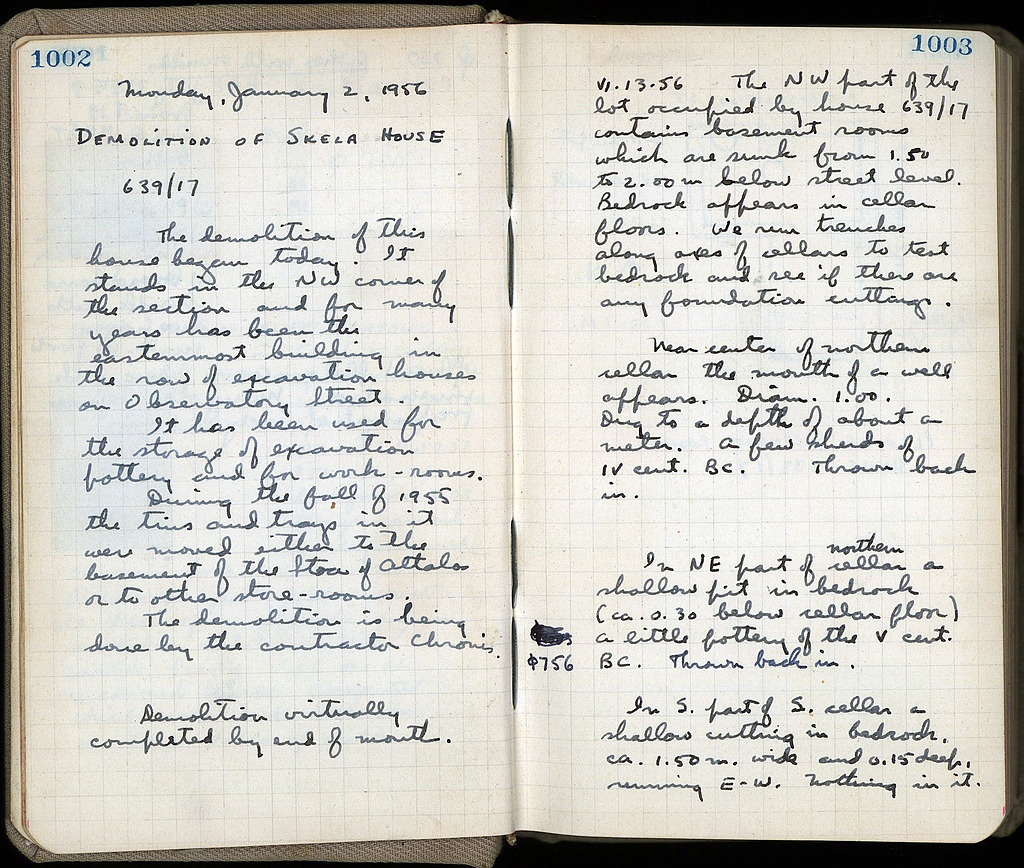 1002
Monday, January 2, 1956
DEMOLITION OF SKELA HOUSE
639/17
The demolition of this
house began today. It
stands in the NW corner of
the section and for many
years has been the
easternmost building in
the row of excavation houses
on Observatory Street.
It has been used for
the storage of excavation
pottery and for work-rooms.
During the fall of 1955
the tins and trays in it
were moved either to the
basement of the Stoa of Attalos
or to other store-rooms.
The demolition is being
done by the contractor Chronis.
Demolition virtually
completed by end of month.
1003
VI.13.56 The NW part of the
lot occupied by house 639/17
contains basement rooms
which are sunk from 1.50
to 2.00m below street level.
Bedrock appears in cellar
floors. We run trenches
along axes of cellars to test
bedrock and see if there are
any foundation cuttings.
Near center of northern
cellar the mouth of a well
appears. Diam. 1.00.
Dug to a depth of about a
meter. A few sherds of
IV cent. BC. Thrown back
in.
In NE part of northern cellar a
shallow pit in bedrock
(ca. 0.30 below cellar floor)
a little pottery of the V cent.
Φ756 BC. Thrown back in.
In S. part of S. cellar a
shallow cutting in bedrock,
ca. 1.50 m. wide and 0.15 deep,
running E-W. Nothing in it.